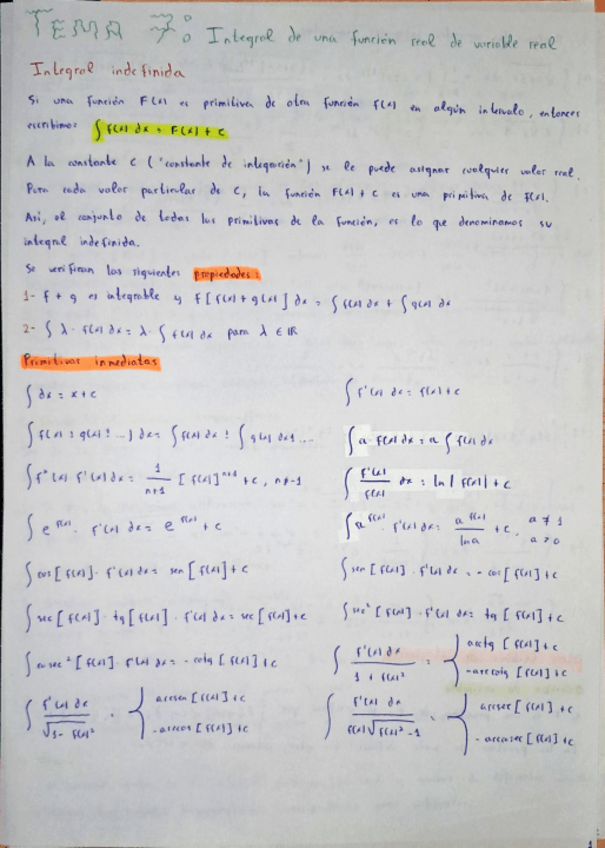 TEMA 7: Integral de una función real de variable real
Integral indefinida
Si una función F(x) es primitiva de otra función f(x) en algún intervalo, entonces
escribimos ∫ f(x) dx = F(x) + c
A la constante C ("constante de integración") se le puede asignar cualquier valor real.
Para cada valor particular de C, la función F(x) + c es una primitiva de f(x).
Así, al conjunto de todas las primitivas de la función, es lo que denominamos su
integral indefinida.
Se verifican las siguientes propiedades:
1- f + g es integrable y F[f(x) + g(x)] dx = ∫ f(x) dx + ∫ g(x) dx
2- ∫ λ · f(x) dx = λ · ∫ f(x) dx para λ ∈ ℝ
Primitivas inmediatas
∫ dx = x + c
∫ f'(x) dx = f(x) + c
∫ f(x) ± g(x) ± ...) dx = ∫ f(x) dx ± ∫ g(x) dx ± ...
∫ a · f(x) dx = a ∫ f(x) dx
∫ fⁿ(x) · f'(x) dx = 1/(n+1) [f(x)]ⁿ⁺¹ + c, n ≠ -1
∫ f'(x)/f(x) dx = ln|f(x)| + c
∫ e^f(x) · f'(x) dx = e^f(x) + c
∫ a^f(x) · f'(x) dx = a^f(x)/ln a + c, a ≠ 1 a > 0
∫ cos[f(x)] · f'(x) dx = sen[f(x)] + c
∫ sen[f(x)] · f'(x) dx = -cos[f(x)] + c
∫ sec[f(x)] · tg[f(x)] · f'(x) dx = sec[f(x)] + c
∫ sec²[f(x)] · f'(x) dx = tg[f(x)] + c
∫ cosec²[f(x)] · f'(x) dx = -cotg[f(x)] + c
∫ f'(x) dx / (1 + f(x)²) = { arctg[f(x)] + c
-arccotg[f(x)] + c
∫ f'(x) dx / √(1 - f(x)²) = { arcsen[f(x)] + c
-arccos[f(x)] + c
∫ f'(x) dx / (f(x)√(f(x)² - 1)) = { arcsec[f(x)] + c
-arccosec[f(x)] + c